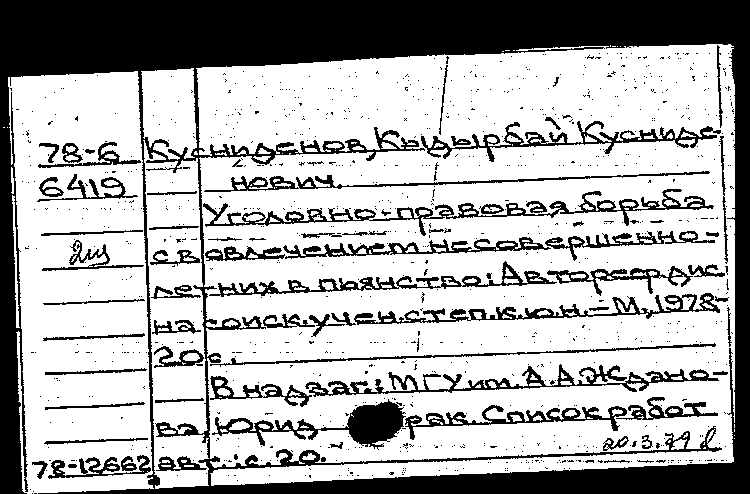 78-6 Кусниденов, Кыдырбай Кусниде-
6419 нович.
Уголовно-правовая борьба
2из с вовлечением несовершенно-
летних в пьянство: Автореф дис
на соиск. учен. степ. к.ю.н. - М., 1978-
20с.
В надзаг.: МГУ им. А.А. Ждано-
ва, Юрид фак. Список работ
78-12662 авт.: с. 20. 20.3.79